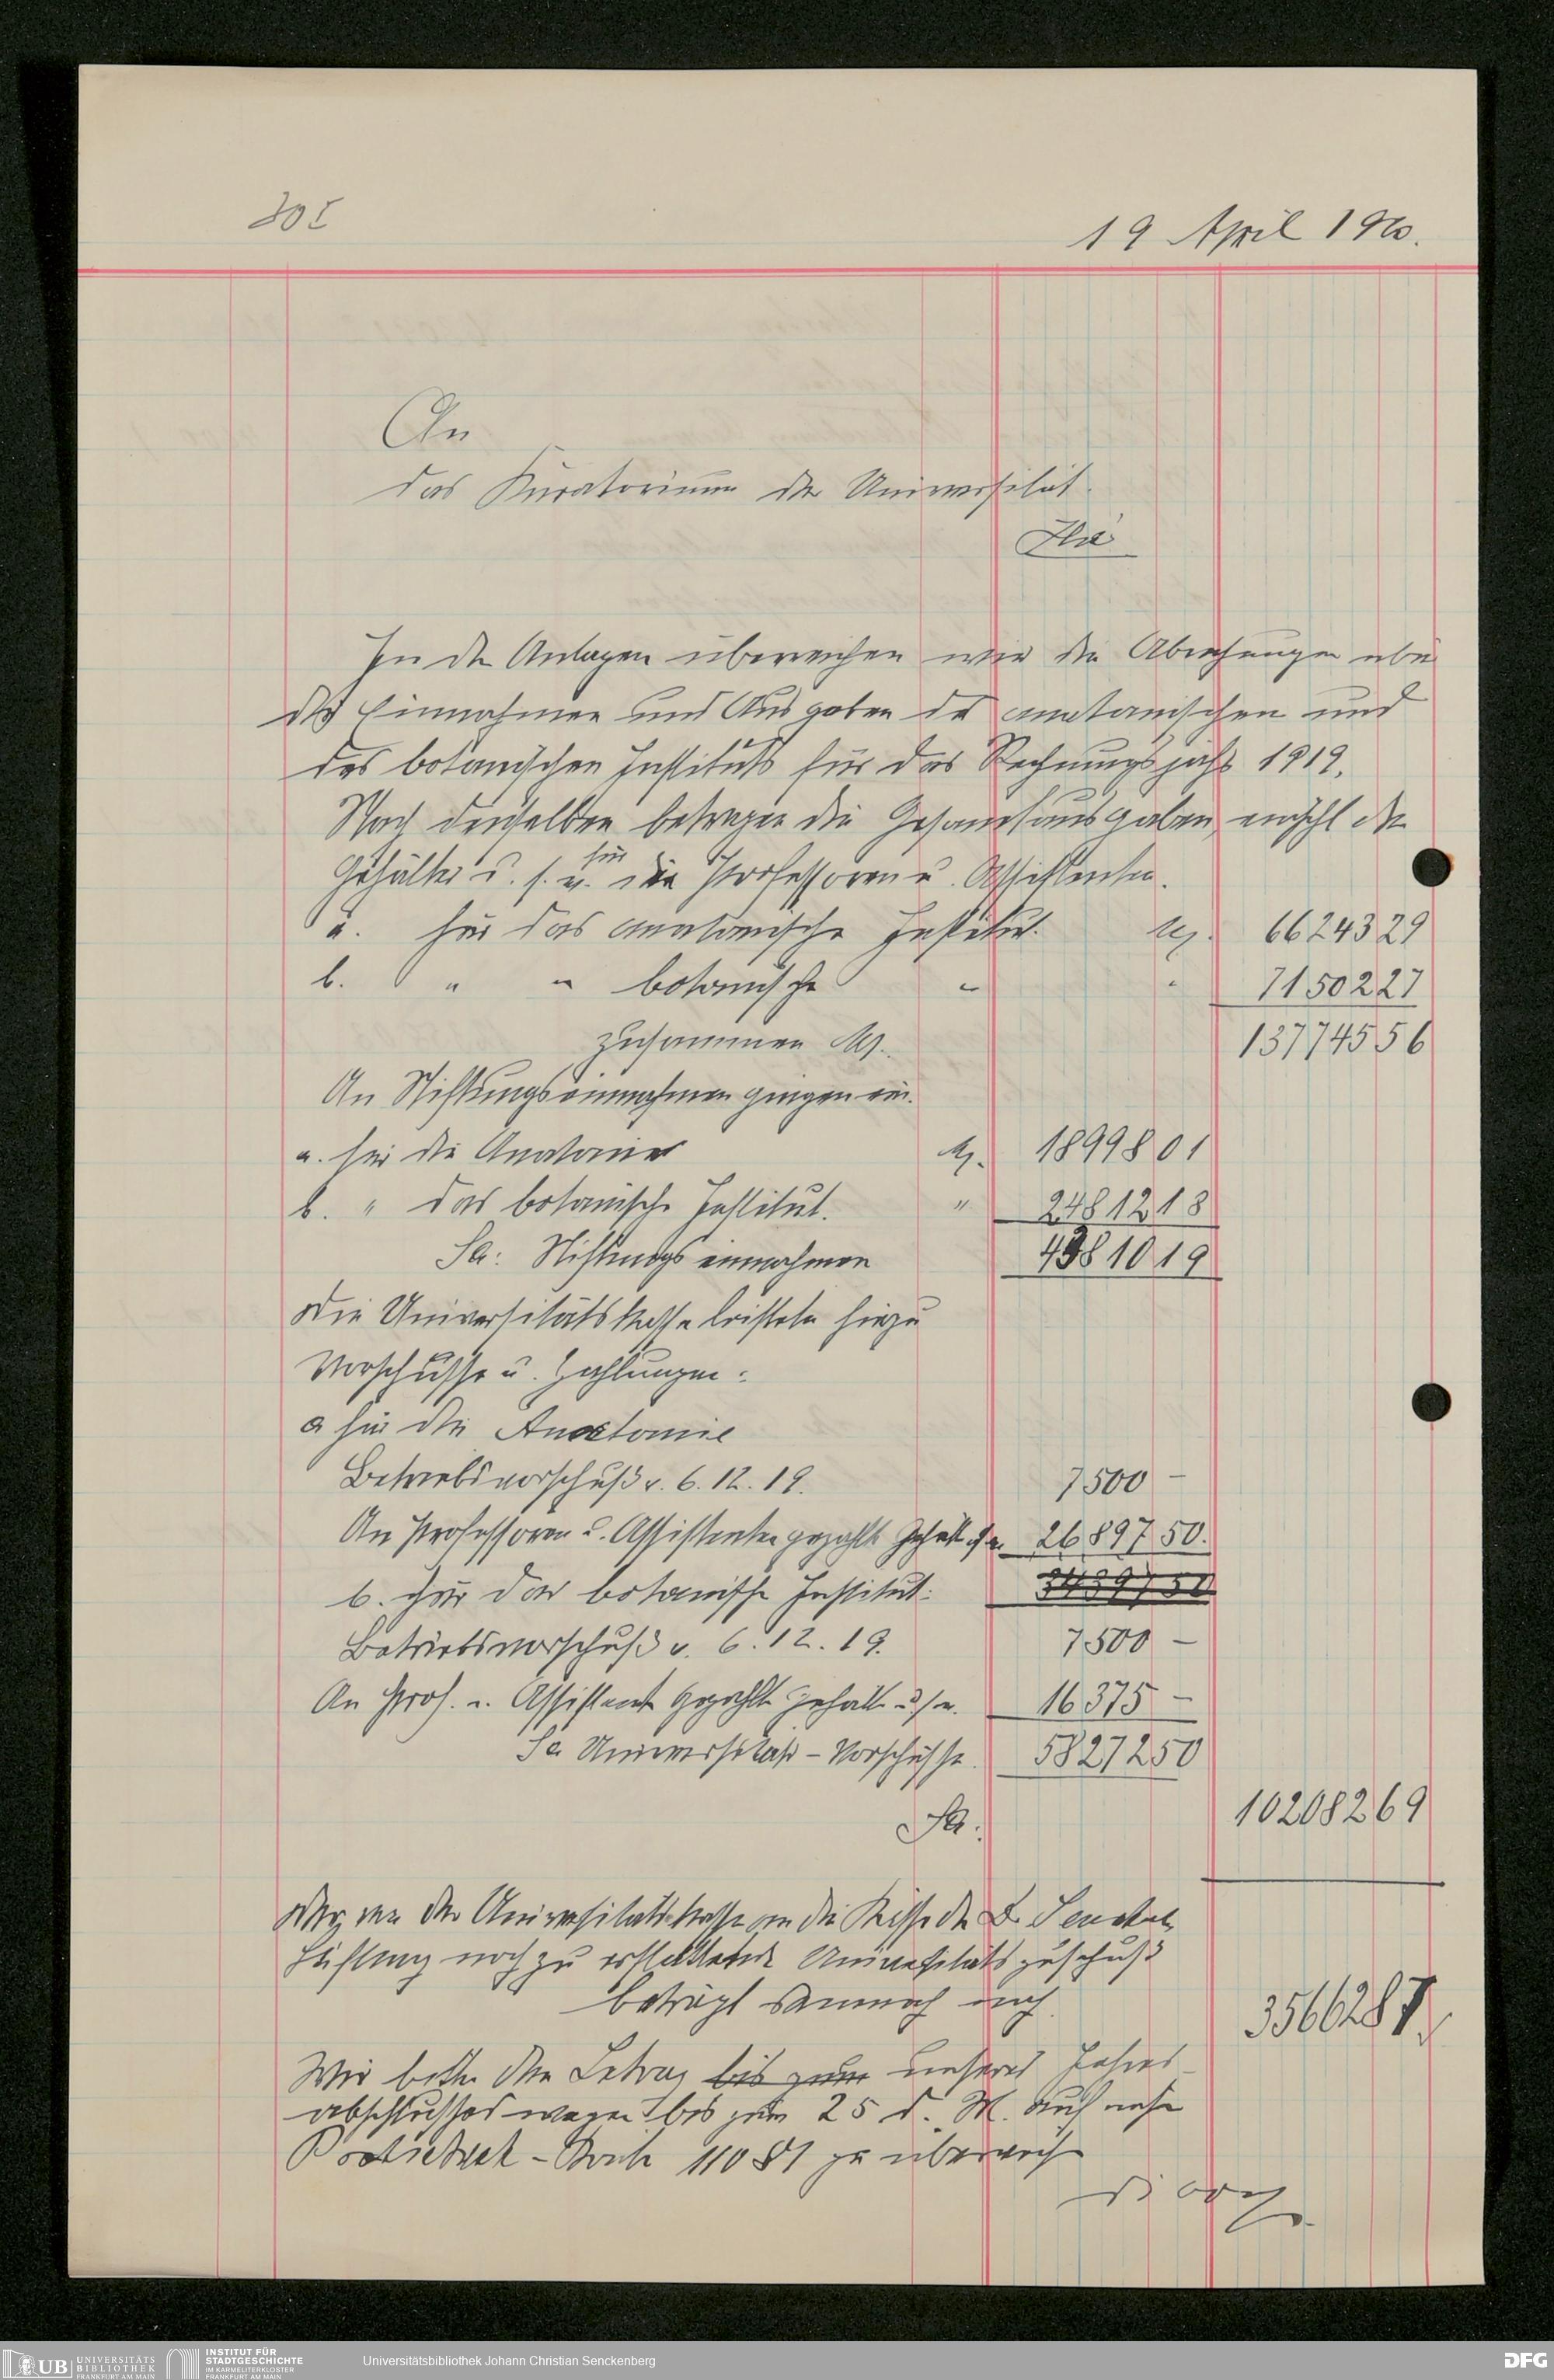 19 April 1920.
An
das Kuratorium der Universität.
Hier
In den Anlagen überreichen wir die Abrechnungen über
die Einnahmen und Ausgaben des anatomischen und
des botanischen Instituts für das Rechnungsjahr 1919.
Nach denselben betragen die Gesamtausgaben, einschl der
Gehälter u. s. w. für die Professoren u. Assistenten.
a. für das anatomische Institut. M. 66243 29
b. " " botanische " " 71502 27
zusammen M. 137745 56
An Stiftungseinnahmen gingen ein.
a. für die Anatomie M. 18998 01
b. " das botanische Institut. " 24812 18
Sa: Stiftungseinnahmen 43810 19
Die Universitätskasse leistete hiezu
Vorschüsse u. Zahlungen:
a für die Anatomie
Betriebsvorschuß v. 6.12.19. 7500 –
An Professoren u. Assistenten gezahlte Gehält. 26897 50.
b. für das botanische Institut: 34397 50
Betriebsvorschuß v. 6.12.19. 7500 –
An Prof. u. Assistent gezahlte Gehält. u. s. w. 16375 –
Sa Universitäts-Vorschüsse. 58272 50
Sa: 102082 69
Der von der Universitätskasse an die Kasse der Dr. Senckenb.
Stiftung noch zu erstattende Universitätszuschuß
beträgt demnach noch. 35662 87
Wir bitten den Betrag bis zum unseres Jahres-
abschlusses wegen bis zum 25 d. M. auf unser
Postscheck-Konto 11081 zu überweisen